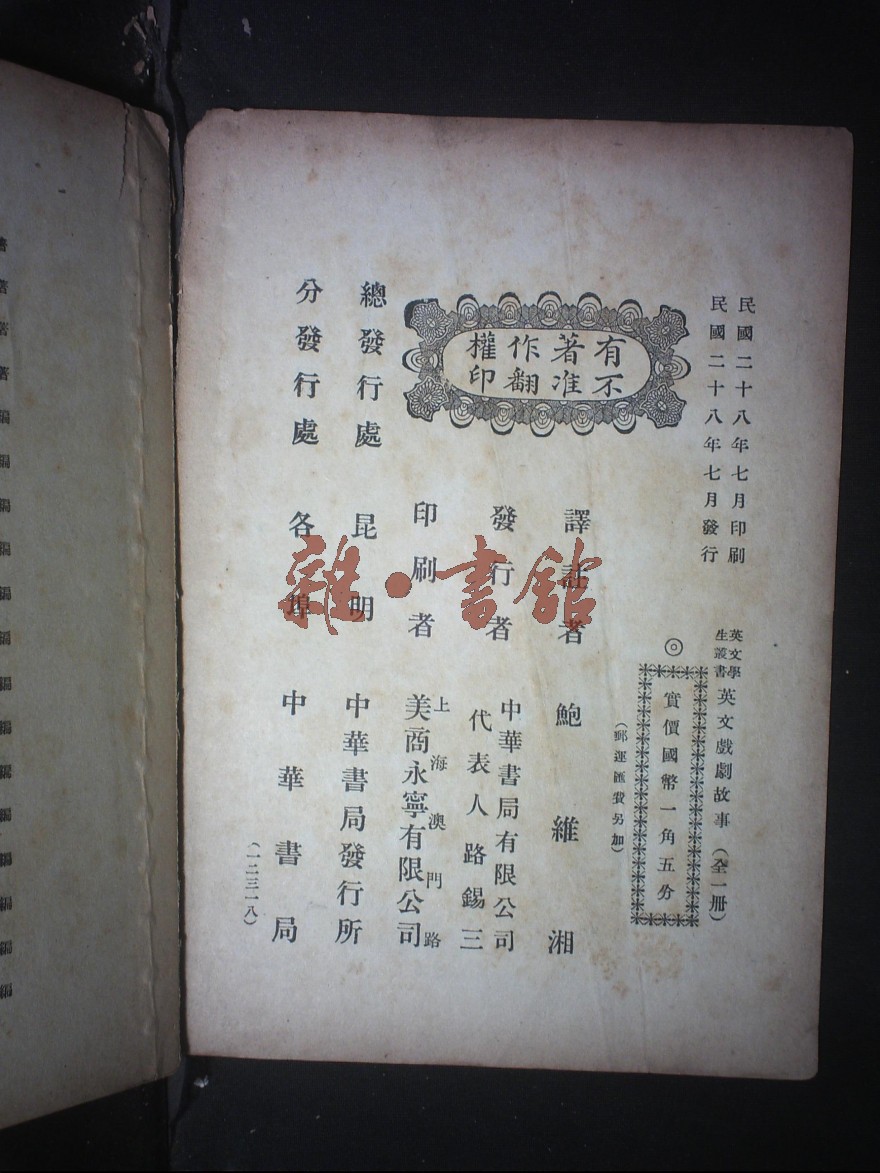 民國二十八年七月印刷
民國二十八年七月發行
英文學
生叢書
英文戲劇故事(全一册)
◎
實價國幣一角五分
(郵運匯費另加)
有著作權
不准翻印
譯註者 鮑維湘
發行者 中華書局有限公司
代表人路錫三
印刷者 上海澳門路
美商永寧有限公司
總發行處 昆明 中華書局發行所
分發行處 各埠 中華書局
(一二三一八)
雜·書館